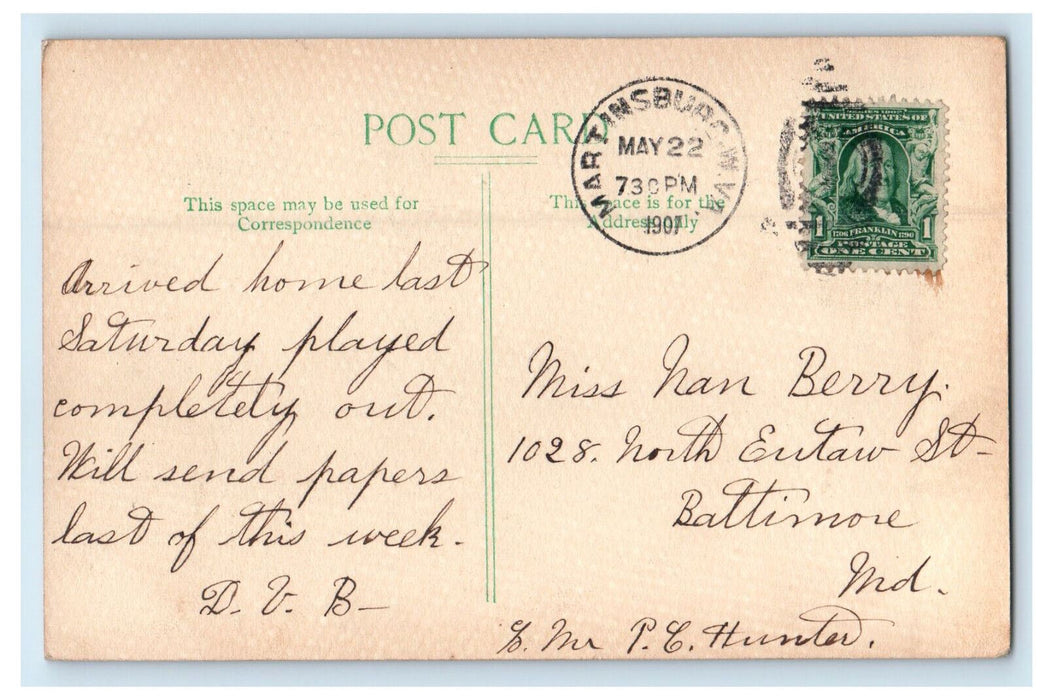 POST CARD
MARTINSBURG, W.VA.
MAY 22
730 PM
1907
UNITED STATES OF
AMERICA
1 1706 FRANKLIN 1790
POSTAGE
ONE CENT
This space may be used for
Correspondence
This space is for the
Address only
Arrived home last
Saturday played
completely out.
Will send papers
last of this week.
D. V. B—
Miss Nan Berry.
1028. North Eutaw St—
Baltimore
Md.
Mr P. C. Hunter.